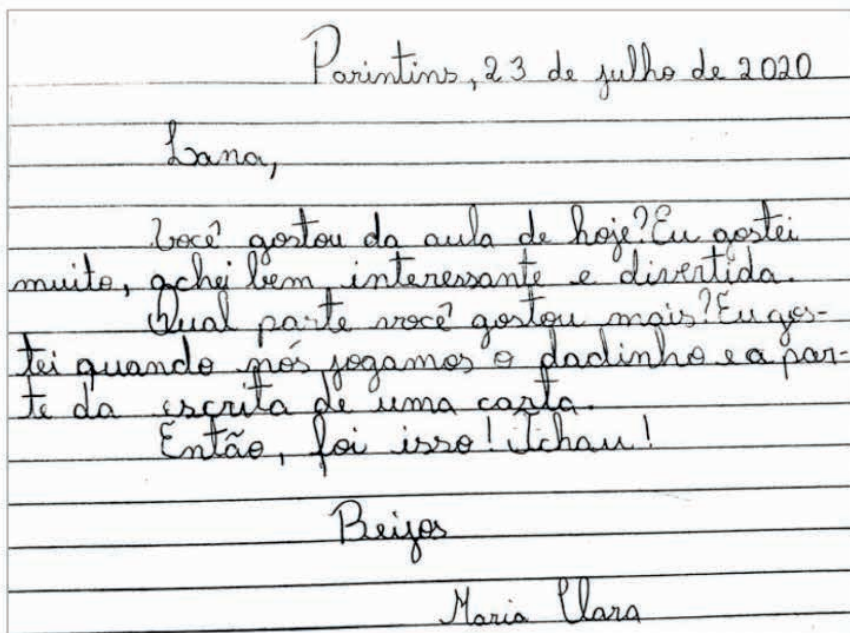 Parintins, 23 de julho de 2020
Lana,
Você gostou da aula de hoje? Eu gostei
muito, achei bem interessante e divertida.
Qual parte você gostou mais? Eu gos-
tei quando nós jogamos o dadinho e a par-
te da escrita de uma carta.
Então, foi isso! Tchau!
Beijos
Maria Clara